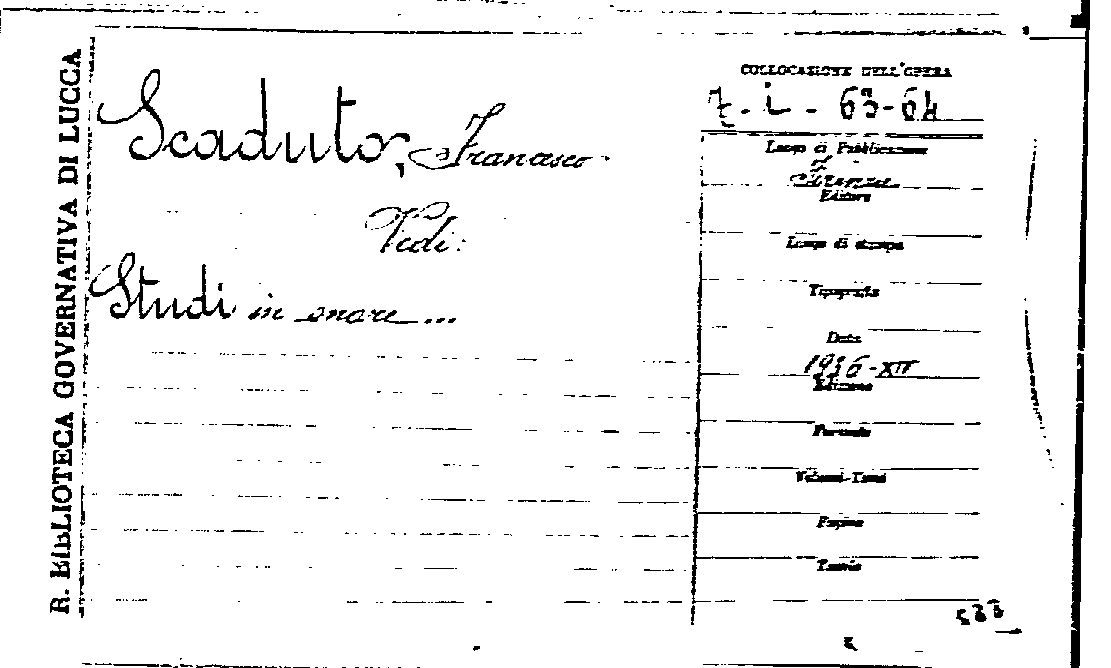 R. BIBLIOTECA GOVERNATIVA DI LUCCA
Scaduto, Francesco.
Vedi:
Studi in onore ...
COLLOCAZIONE DELL'OPERA
Z. i - 63-64
Luogo di Pubblicazione
Firenze
Editore
Luogo di stampa
Tipografia
Data
1936-XIV
Edizione
Formato
Volumi-Tomi
Pagine
Tavole
533